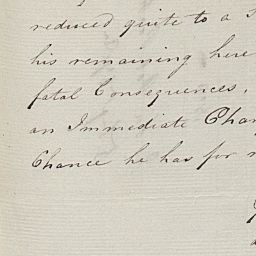 reduced quite to a
his remaining here
fatal Consequences,
an Immediate
Chance he has for